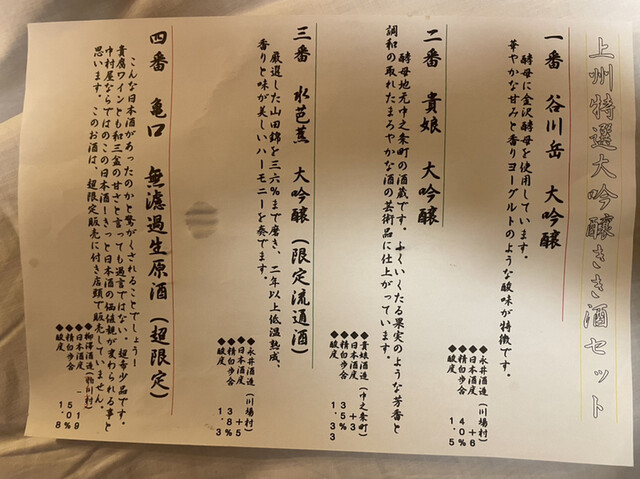 上州特選大吟醸きき酒セット
一番　谷川岳　大吟醸
酵母に金沢酵母を使用しています。
華やかな甘みと香りヨーグルトのような酸味が特徴です。
◆永井酒造（川場村）
◆日本酒度　＋6
◆精白歩合　40%
◆酸度　1.5
二番　貴娘　大吟醸
酵母地元中之条町の酒蔵です。ふくいくたる果実のような芳香と
調和の取れたまろやかな酒の芸術品に仕上がっています。
◆貴娘酒造（中之条町）
◆日本酒度　＋3
◆精白歩合　35%
◆酸度　1.5
三番　水芭蕉　大吟醸（限定流通酒）
厳選した山田錦を三六%まで磨き、二年以上低温熟成、
香りと味が美しいハーモニーを奏でます。
◆永井酒造（川場村）
◆日本酒度　＋5
◆精白歩合　38%
◆酸度　1.33
四番　亀口　無濾過生原酒（超限定）
こんな日本酒があったのかと驚がくされることでしょう！
貴腐ワインとも和三盆の甘さと言っても過言ではない、超希少品です。
中村屋ならではのこの日本酒！きっと日本酒の価値観が変わられる事と
思います。このお酒は、超限定販売に付き店頭で販売していません。
◆柳澤酒造（粕川村）
◆日本酒度　－19
◆精白歩合　50%
◆酸度　1.8